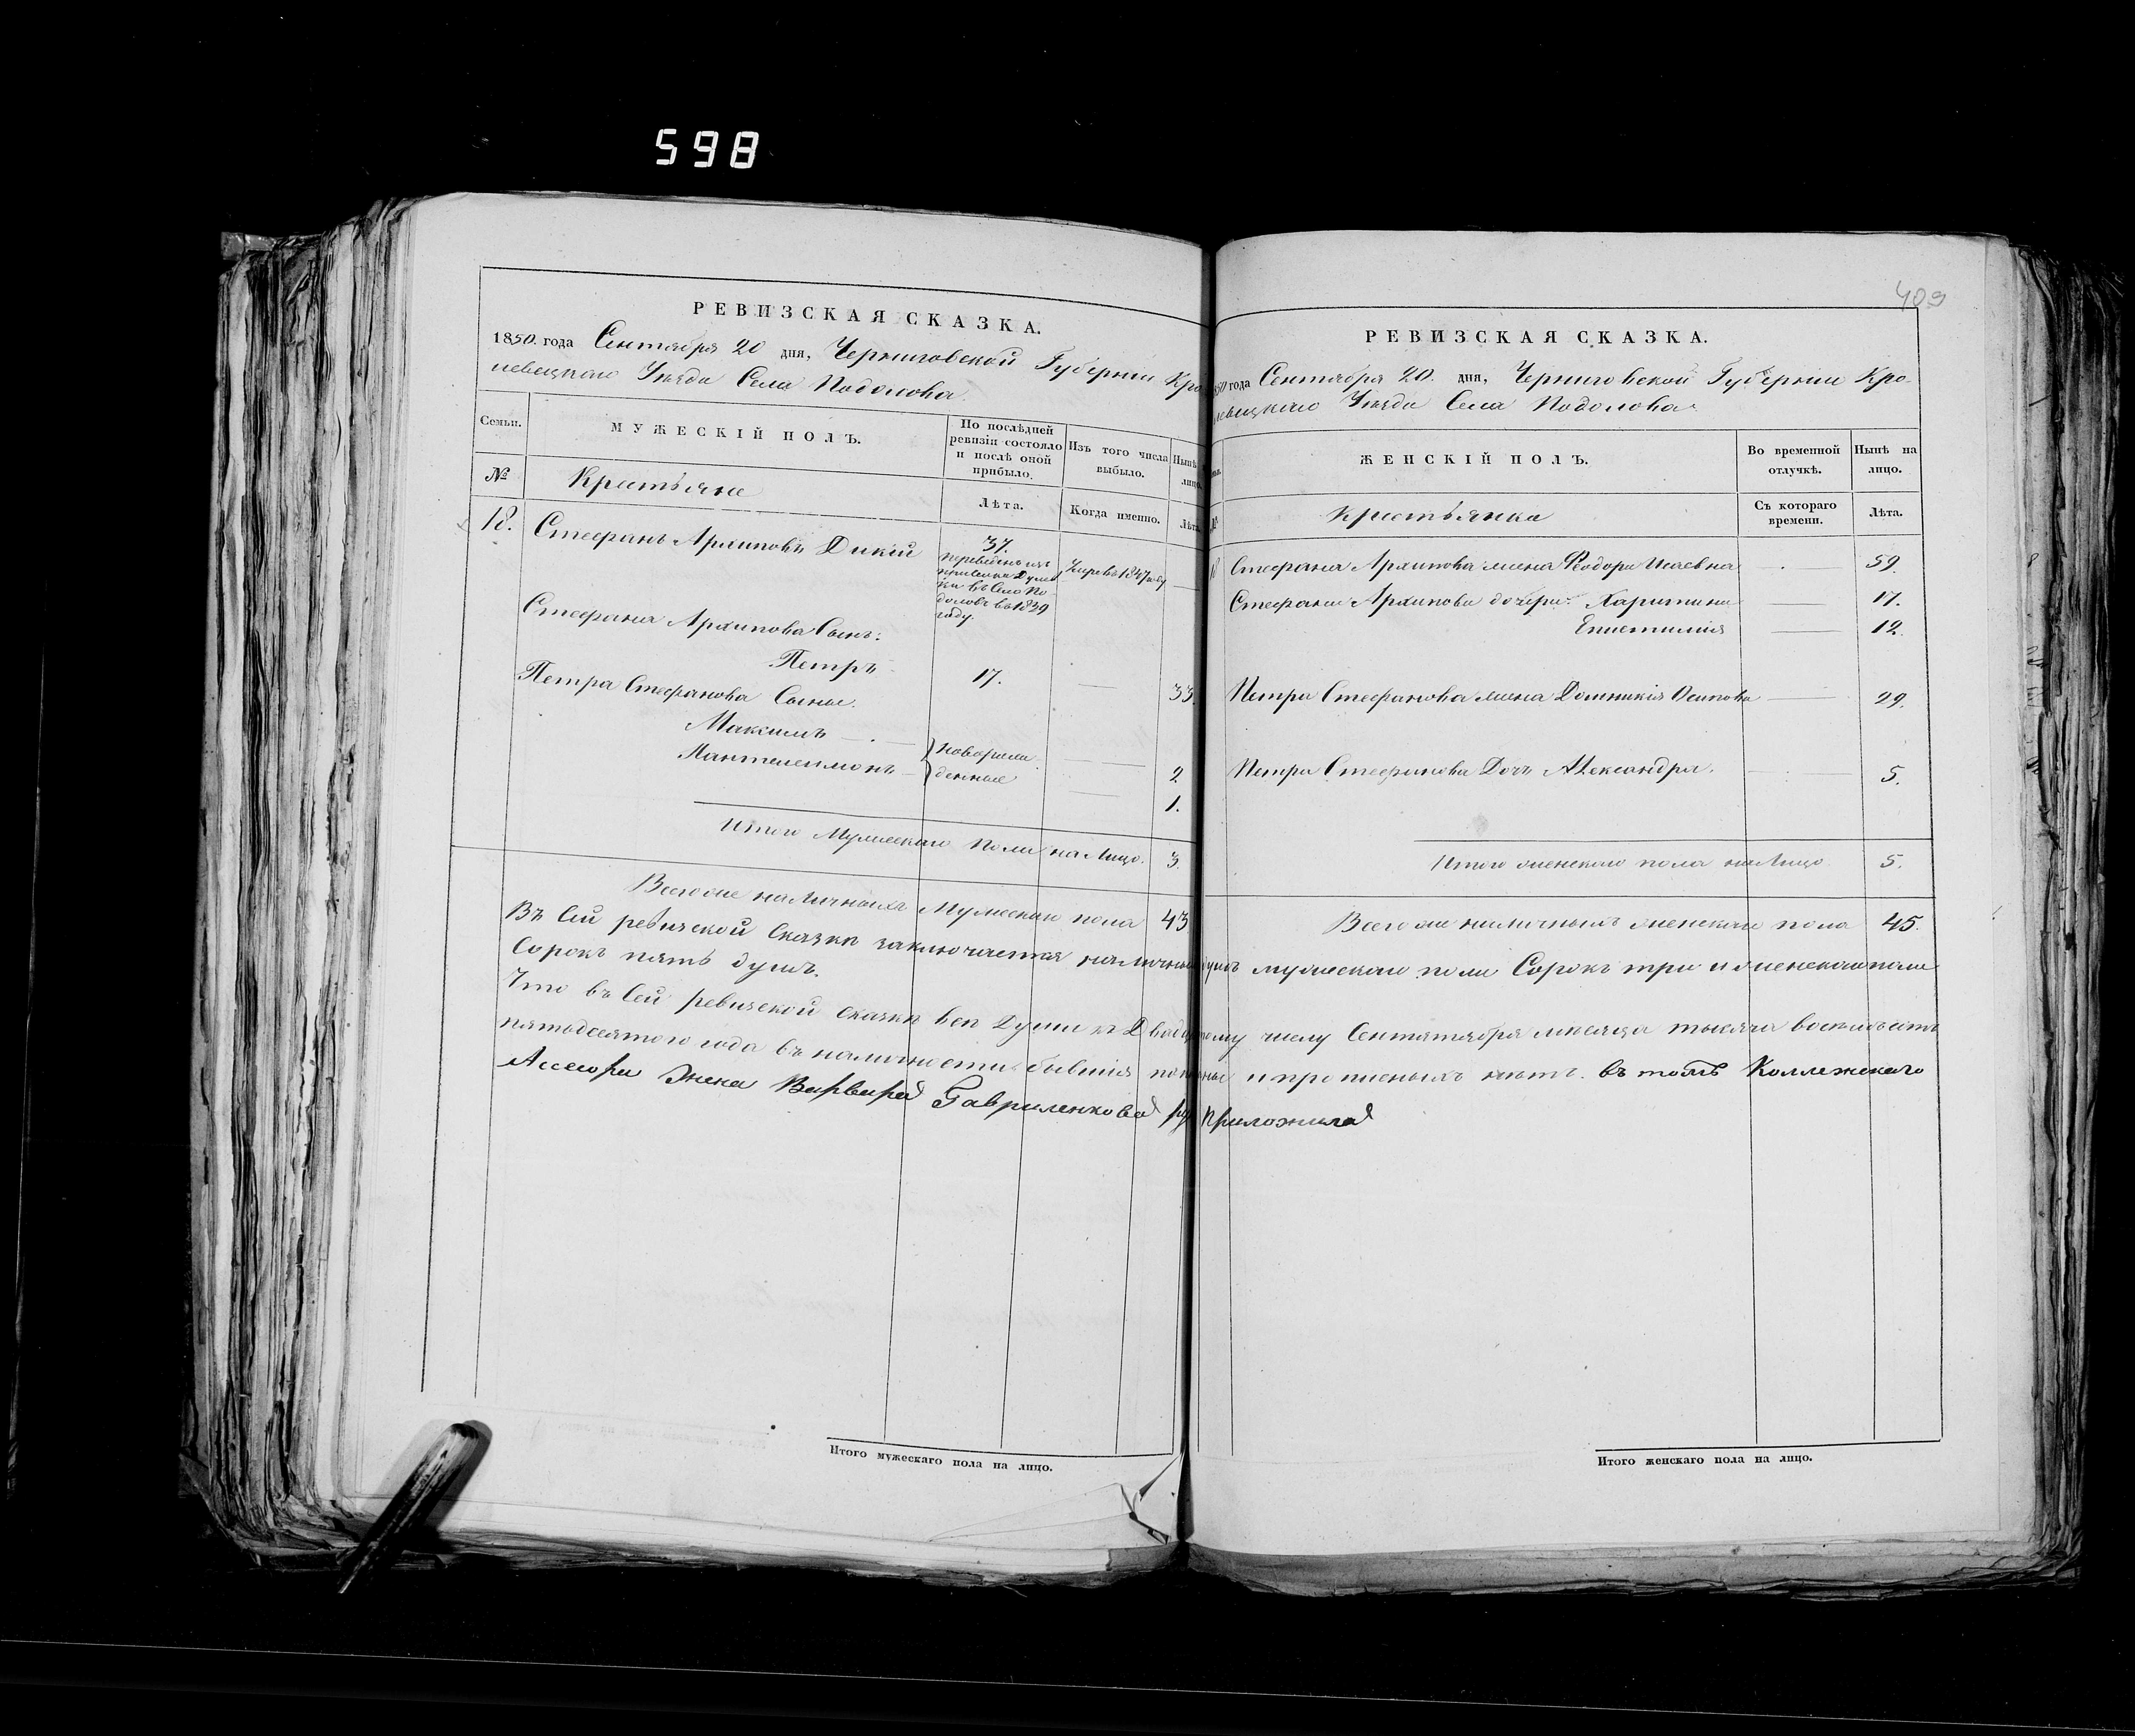 598
РЕВИЗСКАЯ СКАЗКА.
1850. года Сентября 20 дня, Черниговской Губернии Кро
левецкаго Уѣзда Села Подолова
Семьи.
МУЖЕСКІЙ ПОЛЪ.
По послѣдней
ревизіи состояло
и послѣ оной
прибыло.
Изъ того числа
выбыло.
Нынѣ
лицо.
№
Крестьяне
Лѣта.
Когда именно.
Лѣта
18.
Стефанъ Архиповъ Дикій
37.
переведенъ изъ
въ село По
долова въ 1839
году.
Умре въ 1847 году
Стефана Архипова Сынъ:
Петръ
17.
33.
Петра Стефанова Сынъ.
Максимъ
Пантелеимонъ
новорож
денные
2
1.
Итого Мужескаго пола на Лицо.
3.
Всего же наличныхъ Мужескаго пола
43
Въ сей ревизской Сказкѣ заключается наличныхъ
Сорокъ пять душъ.
Что въ Сей ревизской сказкѣ всѣ Души къ Двадца
пятьдесятого года въ наличности бывшія
Ассесора Жена Варвара Гавриленкова
Итого мужескаго пола на лицо.
409
РЕВИЗСКАЯ СКАЗКА.
1850 года Сентября 20. дня, Черниговской Губерніи Кро-
левецкаго Уѣзда Села Подолова
ЖЕНСКІЙ ПОЛЪ.
Во временной
отлучкѣ.
Нынѣ на
лицо.
№
Крестьянки
Съ котораго
времени.
Лѣта.
18
Стефана Архипова жена Феодора Исаевна
59.
Стефана Архипова дочери: Харитина
17.
Епистимія
12.
Петра Стефанова жена Домникія Осипова
29.
Петра Стефанова Дочь Александра.
5.
Итого женскаго пола на Лицо
5.
Всего же наличныхъ женскаго пола
45.
душъ мужескаго пола Сорокъ три и женскаго пола
тому числу Сентятября мѣсяца тысяча восемьсотъ
и прописныхъ нѣтъ. въ томъ Коллежскаго
приложила
Итого женскаго пола на лицо.